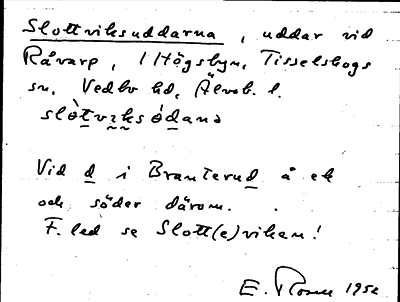 Slottviksuddarna, uddar vid
Råvarp, i Högsbyn, Tisselskogs
sn, Vedbo hd, Älvsb. l.
slòtvıksódana
Vid d i Branterud å ek
och söder därom.
F. led se Slott(e)viken!
E. Rosen 1952